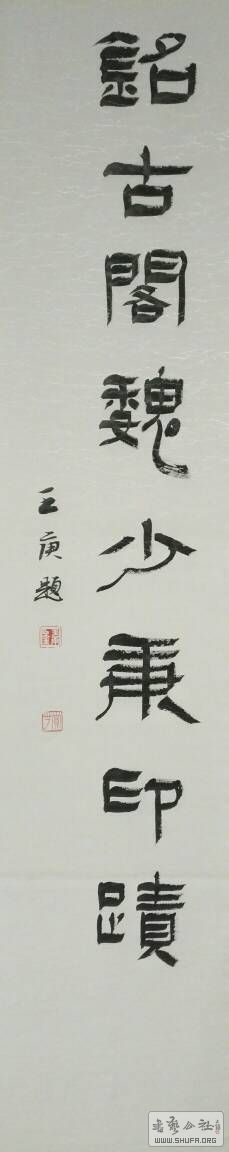 銘古閣魏少秉印蹟
王庚題
書艺公社
WWW.SHUFA.ORG